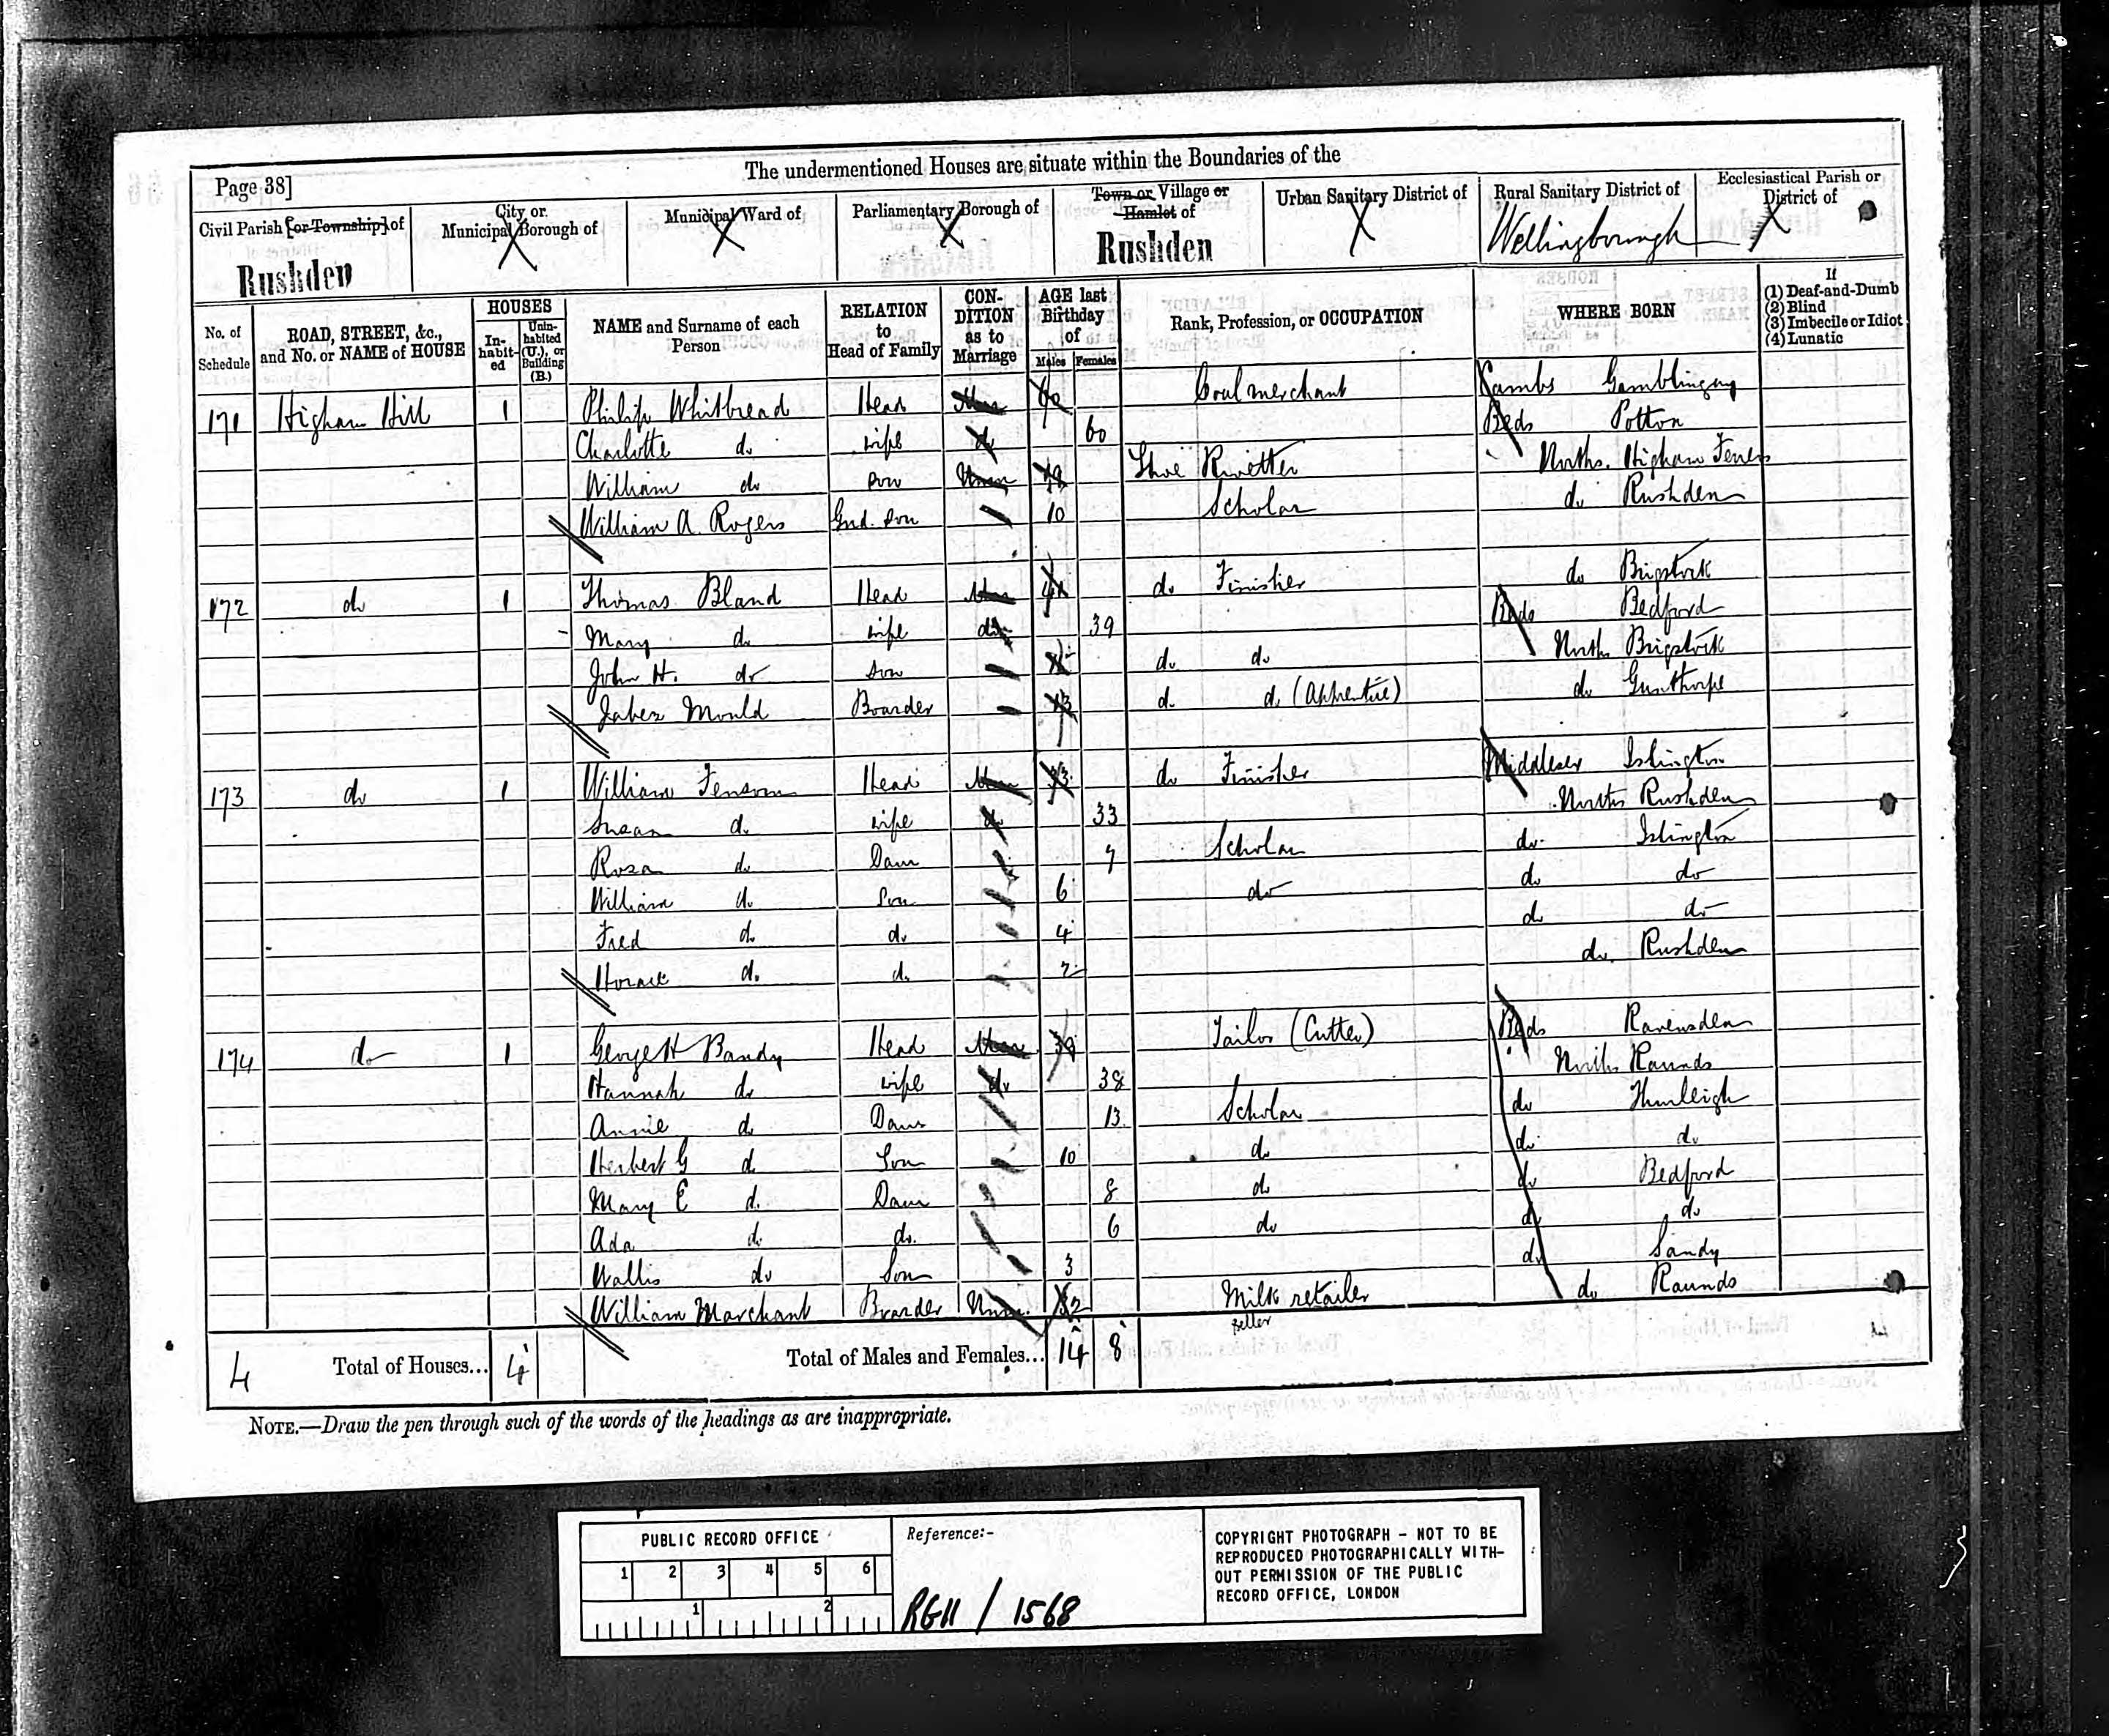 The undermentioned Houses are situate within the Boundaries of the
Page 38]
Civil Parish [or Township] of Rushden
City or Municipal Borough of X
Municipal Ward of X
Parliamentary Borough of X
Town or Village or Hamlet of Rushden
Urban Sanitary District of X
Rural Sanitary District of Wellingborough
Ecclesiastical Parish or District of X
No. of Schedule
ROAD, STREET, &c., and No. or NAME of HOUSE
HOUSES
In-habit-ed
Unin-habited (U.), or Building (B.)
NAME and Surname of each Person
RELATION to Head of Family
CON-DITION as to Marriage
AGE last Birthday of
Males
Females
Rank, Profession, or OCCUPATION
WHERE BORN
If
(1) Deaf-and-Dumb
(2) Blind
(3) Imbecile or Idiot
(4) Lunatic
171 Higham Hill 1 Philip Whitbread Head Mar Coal merchant Cambs Gamblingay
Charlotte do wife do 60 Beds Potton
William do son Unm 19 Shoe Rivetter Norths. Higham Ferrers
William A. Rogers Gnd. son 10 Scholar do Rushden
172 do 1 Thomas Bland Head Mar do Finisher do Brigstock
Mary do wife do 39 Beds Bedford
John H. do son do do Norths Brigstock
Jabez Mould Boarder 13 do do (Apprentice) do
173 do 1 William Fensom Head Mar 33 do Finisher Middlesex Islington
Susan do wife do 33 Norths Rushden
Rosa do Daur Scholar do Islington
William do Son 6 do do do
Fred do do 4 do do
Horace do do 2 do Rushden
174 do 1 George H Bandy Head Mar 39 Tailor (Cutter) Beds Ravensden
Hannah do wife do 38 Norths Raunds
Annie do Daur 13 Scholar do Thurleigh
Herbert G do Son 10 do do do
Mary E do Daur 8 do do Bedford
Ada do do 6 do do do
Wallis do Son 3 do Sandy
William Marchant Boarder Unm. 32 Milk retailer do Raunds
seller
4 Total of Houses... 4 Total of Males and Females... 14 8
NOTE.—Draw the pen through such of the words of the headings as are inappropriate.
PUBLIC RECORD OFFICE
1 2 3 4 5 6
1 2
Reference:-
RG11 / 1568
COPYRIGHT PHOTOGRAPH - NOT TO BE
REPRODUCED PHOTOGRAPHICALLY WITH-
OUT PERMISSION OF THE PUBLIC
RECORD OFFICE, LONDON